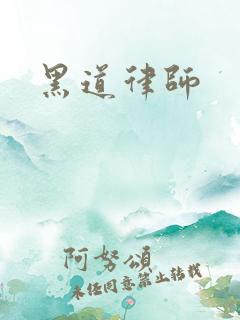 黑道律師
阿努頌
未經同意禁止转载